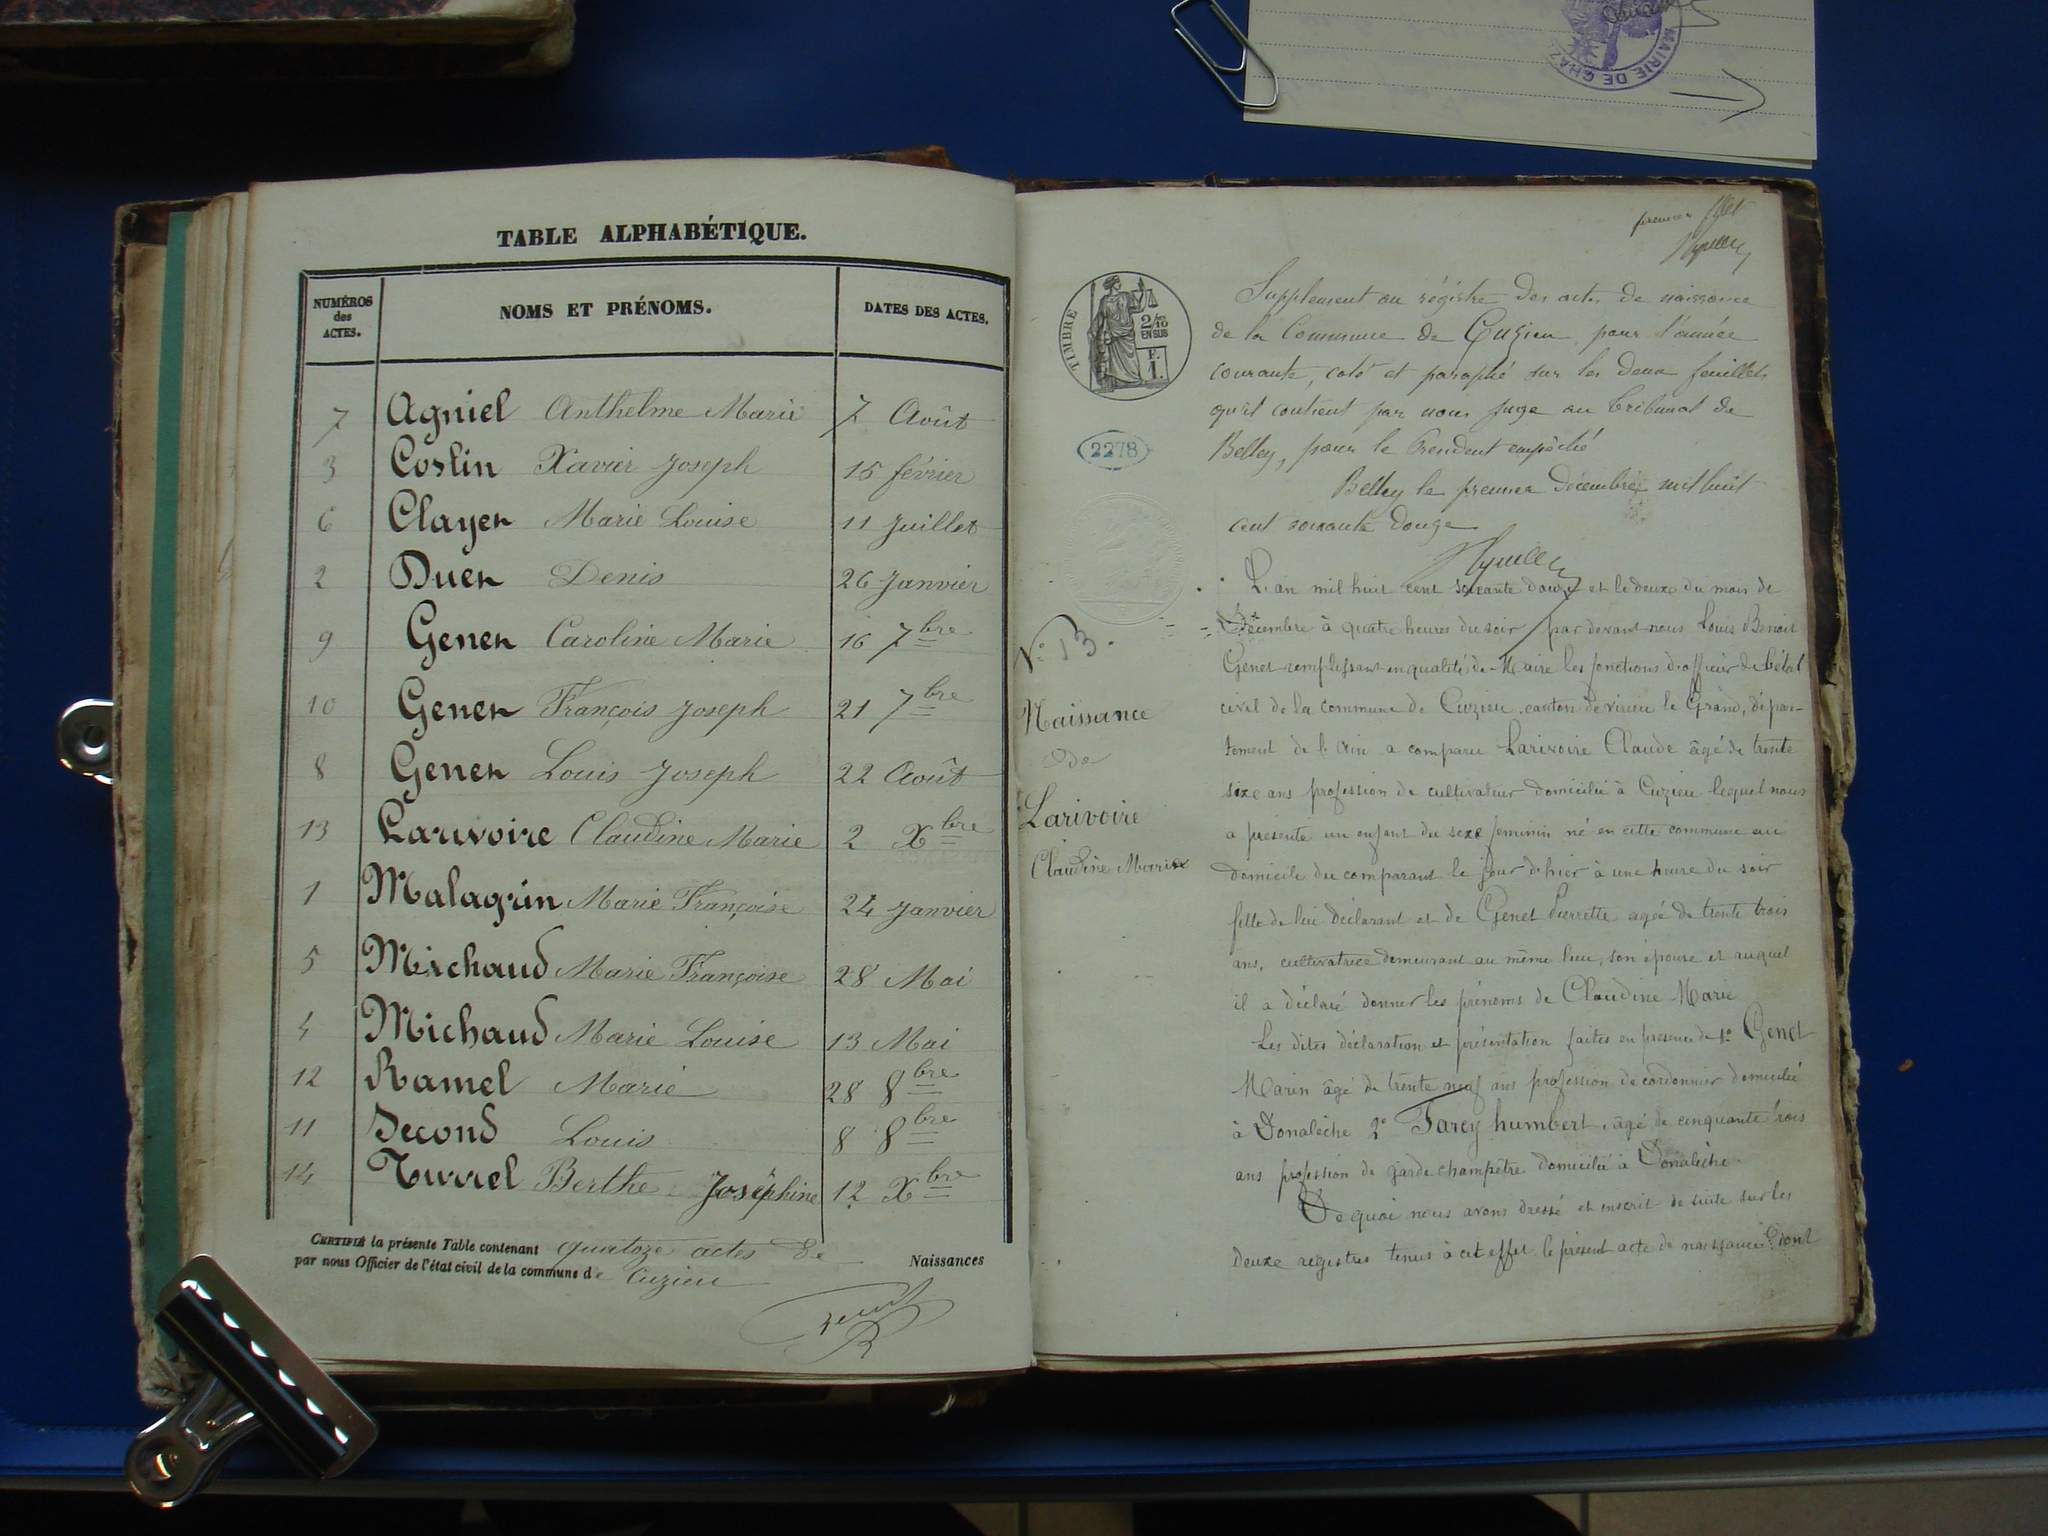 MAIRIE DE CHAZ
TABLE ALPHABÉTIQUE.
NUMÉROS des ACTES. NOMS ET PRÉNOMS. DATES DES ACTES.
7 Agniel Anthelme Marie 7 Août
3 Coslin Xavier Joseph 15 février
6 Clayet Marie Louise 11 Juillet
2 Duet Denis 26 Janvier
9 Genet Caroline Marie 16 7bre
10 Genet François Joseph 21 7bre
8 Genet Louis Joseph 22 Août
13 Larivoire Claudine Marie 2 Xbre
1 Malagrin Marie Françoise 24 Janvier
5 Michaud Marie Françoise 28 Mai
4 Michaud Marie Louise 13 Mai
12 Ramel Marie 28 8bre
11 Second Louis 8 8bre
14 Turrel Berthe Joséphine 12 Xbre
CERTIFIÉ la présente Table contenant quatorze actes de Naissances
par nous Officier de l'état civil de la commune de Cuzieu
premier
TIMBRE
2/10 EN SUS
F. 1.
2278
Supplement au régistre des actes de naissance
de la Commune de Cuzieu, pour l'année
courante, coté et paraphé sur les deux feuillets
qu'il contient par nous juge au tribunal de
Belley, pour le President empêché
Belley le premier décembre mil huit
cent soixante douze
N° 13.
Naissance
de
Larivoire
Claudine Marie
L'an mil huit cent soixante douze et le deux du mois de
Décembre à quatre heures du soir par devant nous Louis Benoit
Genet remplissant en qualité de Maire les fonctions d'officier de l'état
civil de la commune de Cuzieu, canton de virieu le Grand, dépar-
tement de l'Ain a comparu Larivoire Claude âgé de trente
sixe ans profession de cultivateur domicilié à Cuzieu lequel nous
a présenté un enfant du sexe feminin né en cette commune au
domicile du comparant le jour d'hier à une heure du soir
fille de lui déclarant et de Genet Pierrette agée de trente trois
ans, cultivatrice demeurant au même lieu, son épouse et auquel
il a déclaré donner les prénoms de Claudine Marie
Les dites déclaration et présentation faites en présence de 1° Genet
Marin âgé de trente neuf ans profession de cordonnier domicilié
à Vonalèche 2° Tarcy humbert, âgé de cinquante trois
ans profession de garde champêtre domicilié à Vonalèche
De quoi nous avons dressé et inscrit de suite sur les
deuxe registres tenus à cet effet le présent acte de naissance dont